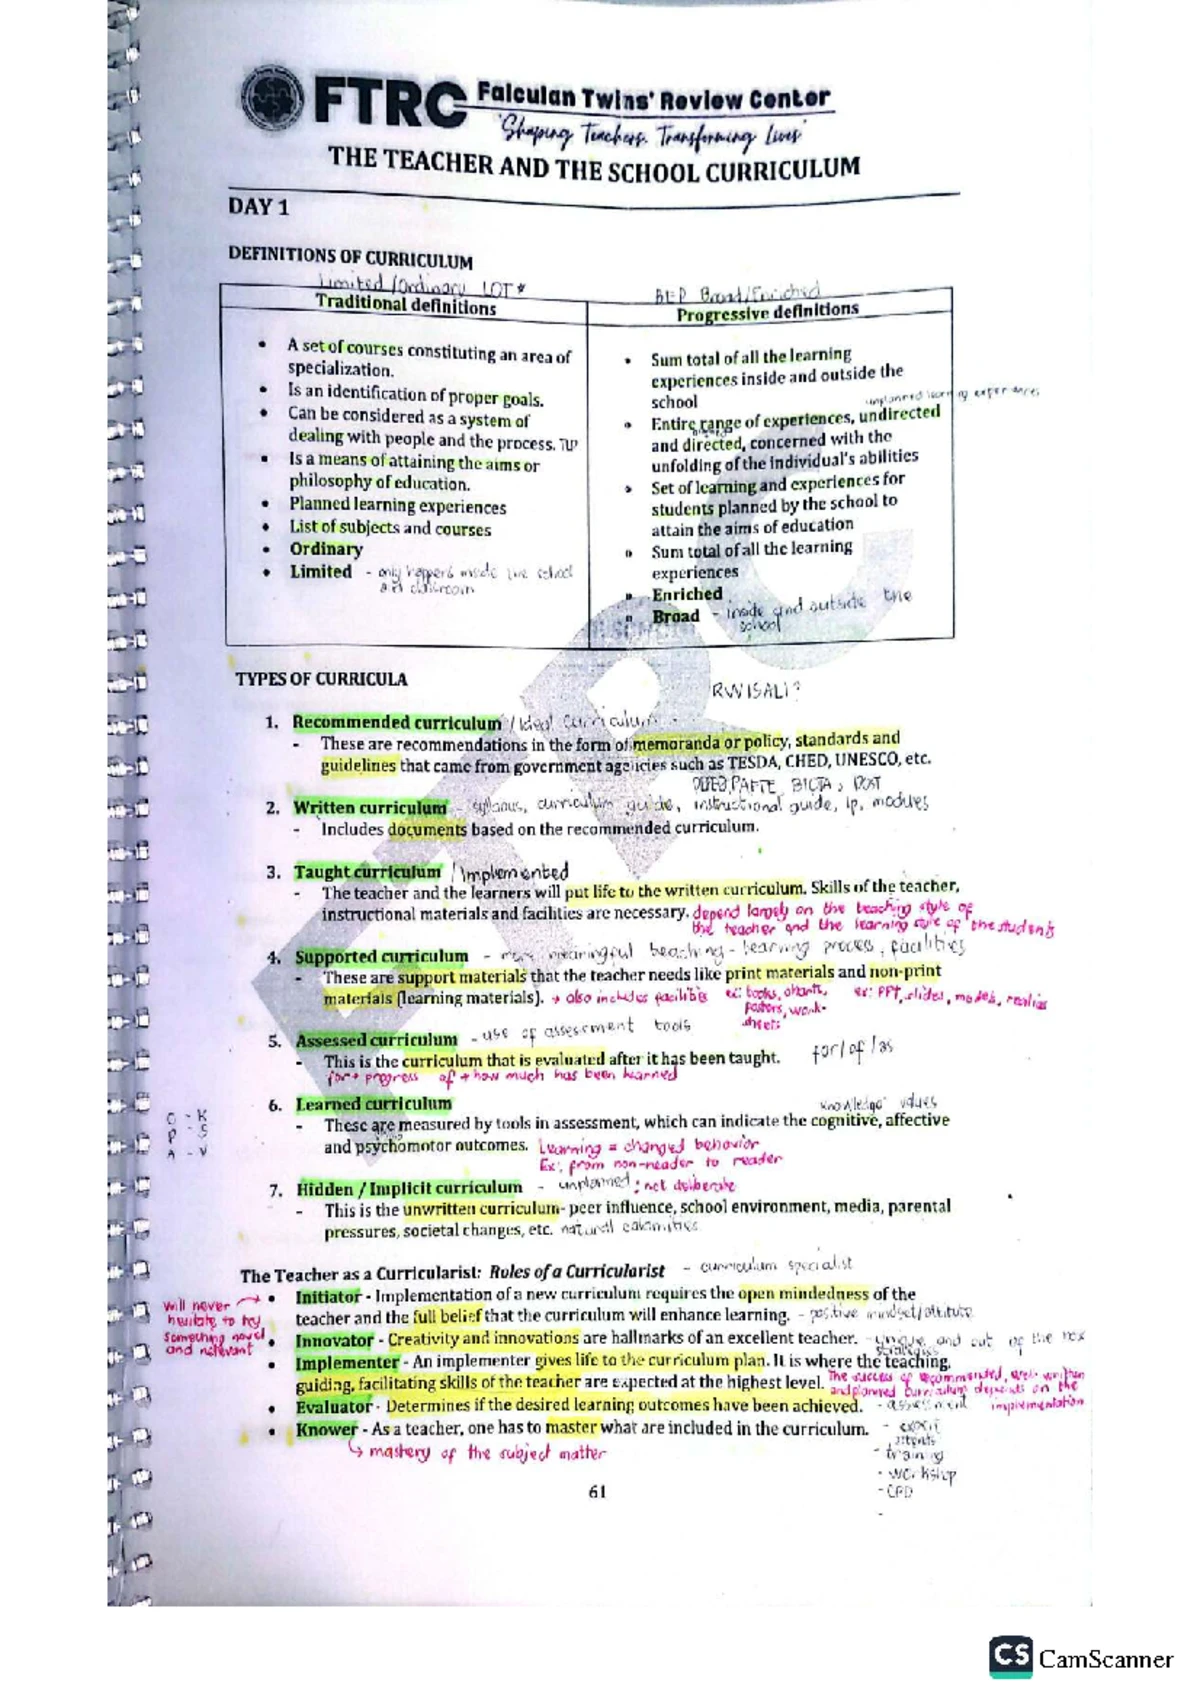 FTRC Falculan Twins' Review Center
"Shaping Teachers, Transforming Lives"
THE TEACHER AND THE SCHOOL CURRICULUM
DAY 1
DEFINITIONS OF CURRICULUM
Limited/Ordinary LOT*
Traditional definitions
• A set of courses constituting an area of
specialization.
• Is an identification of proper goals.
• Can be considered as a system of
dealing with people and the process.
• Is a means of attaining the aims or
philosophy of education.
• Planned learning experiences
• List of subjects and courses
• Ordinary
• Limited - only happens inside the school
and classroom
BEP Broad/Enriched
Progressive definitions
• Sum total of all the learning
experiences inside and outside the
school
unplanned learning experiences
• Entire range of experiences, undirected
and directed, concerned with the
unfolding of the individual's abilities
• Set of learning and experiences for
students planned by the school to
attain the aims of education
• Sum total of all the learning
experiences
• Enriched
• Broad - inside and outside the
school
TYPES OF CURRICULA
RWTSALI?
1. Recommended curriculum / Ideal Curriculum -
- These are recommendations in the form of memoranda or policy, standards and
guidelines that came from government agencies such as TESDA, CHED, UNESCO, etc.
PAFTE, DOST
2. Written curriculum - syllabus, curriculum guide, instructional guide, lp, modules
- Includes documents based on the recommended curriculum.
3. Taught curriculum / Implemented
- The teacher and the learners will put life to the written curriculum. Skills of the teacher,
instructional materials and facilities are necessary. depend largely on the teaching style of
the teacher and the learning style of the students
4. Supported curriculum - more meaningful teaching-learning process, facilities
- These are support materials that the teacher needs like print materials and non-print
materials (learning materials). → also includes facilities ex: books, charts, ex: PPT, slides, models, realias
posters, work-
sheets
5. Assessed curriculum - use of assessment tools
for/of/as
- This is the curriculum that is evaluated after it has been taught.
for → progress of → how much has been learned
6. Learned curriculum
knowledge values
- These are measured by tools in assessment, which can indicate the cognitive, affective
and psychomotor outcomes. Learning = changed behavior
Ex: from non-reader to reader
C - K
P - S
A - V
7. Hidden / Implicit curriculum - unplanned; not deliberate
- This is the unwritten curriculum- peer influence, school environment, media, parental
pressures, societal changes, etc. natural calamities
The Teacher as a Curricularist: Roles of a Curricularist - curriculum specialist
will never
hesitate to try
something novel
and relevant
• Initiator - Implementation of a new curriculum requires the open mindedness of the
teacher and the full belief that the curriculum will enhance learning. - positive mindset/attitude
• Innovator - Creativity and innovations are hallmarks of an excellent teacher. - unique and out of the box
strategies
• Implementer - An implementer gives life to the curriculum plan. It is where the teaching,
guiding, facilitating skills of the teacher are expected at the highest level. The success of recommended, well written
and planned curriculum depends on the
implementation
• Evaluator - Determines if the desired learning outcomes have been achieved. - assessment
• Knower - As a teacher, one has to master what are included in the curriculum.
↳ mastery of the subject matter
- training
- workshop
- CPD
61
CS CamScanner